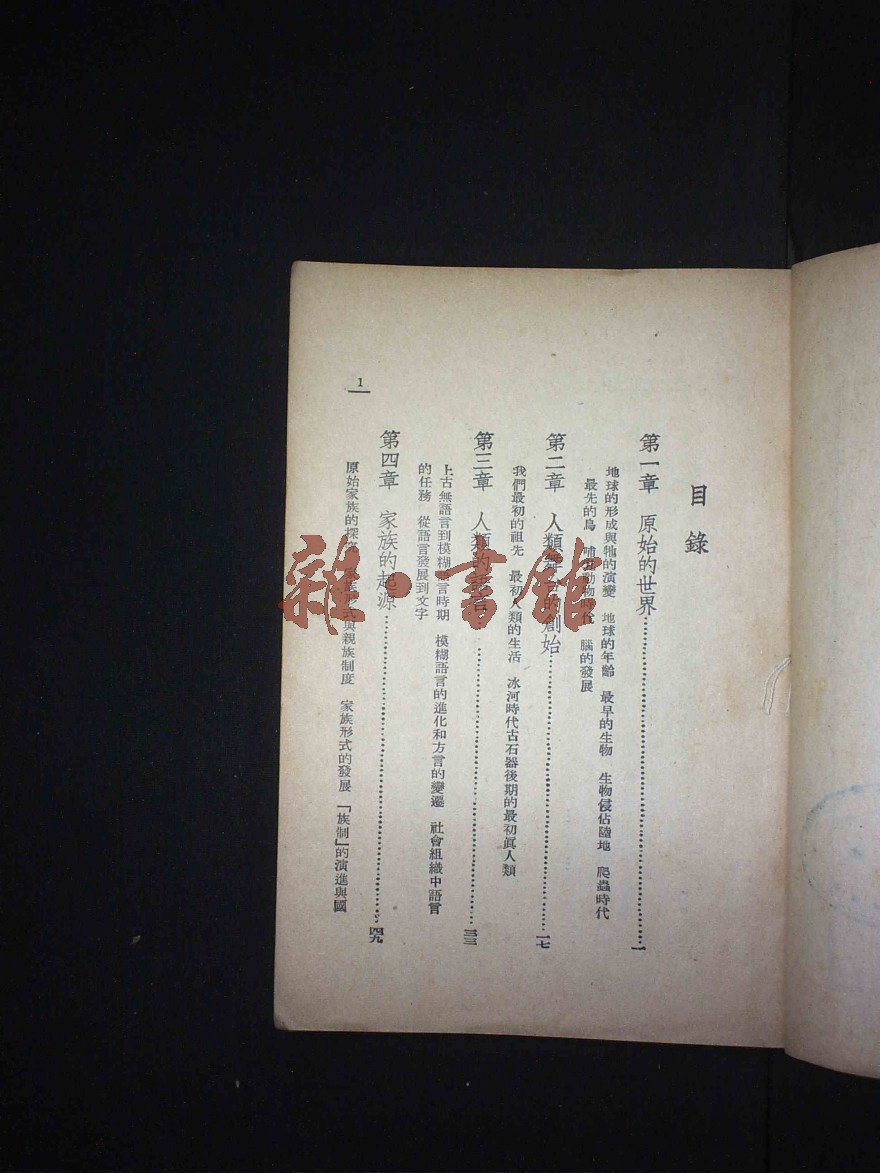 目錄
第一章 原始的世界……一
地球的形成與牠的演變 地球的年齡 最早的生物 生物侵佔陸地 爬蟲時代
最先的鳥 哺乳動物時代 腦的發展
第二章 人類舞台的創始……一七
我們最初的祖先 最初人類的生活 冰河時代古石器後期的最初眞人類
第三章 人類的語言……三三
上古無語言到模糊語言時期 模糊語言的進化和方言的變遷 社會組織中語言
的任務 從語言發展到文字
第四章 家族的起源……四九
原始家族的探究 家族形式與親族制度 家族形式的發展 「族制」的演進與國
1
雜·書館